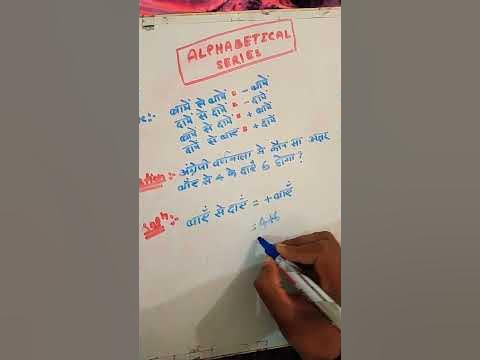 ALPHABETICAL
SERIES
बायें से बायें = - बायें
दायें से दायें = - दायें
बायें से दायें = + बायें
दायें से बायें = + दायें
अंग्रेजी वर्णमाला में कौन सा अक्षर
बाँए से 4 के दाएँ 6 होगा?
Soln:- बाएँ से दाएँ = + बाएँ
= 4+6